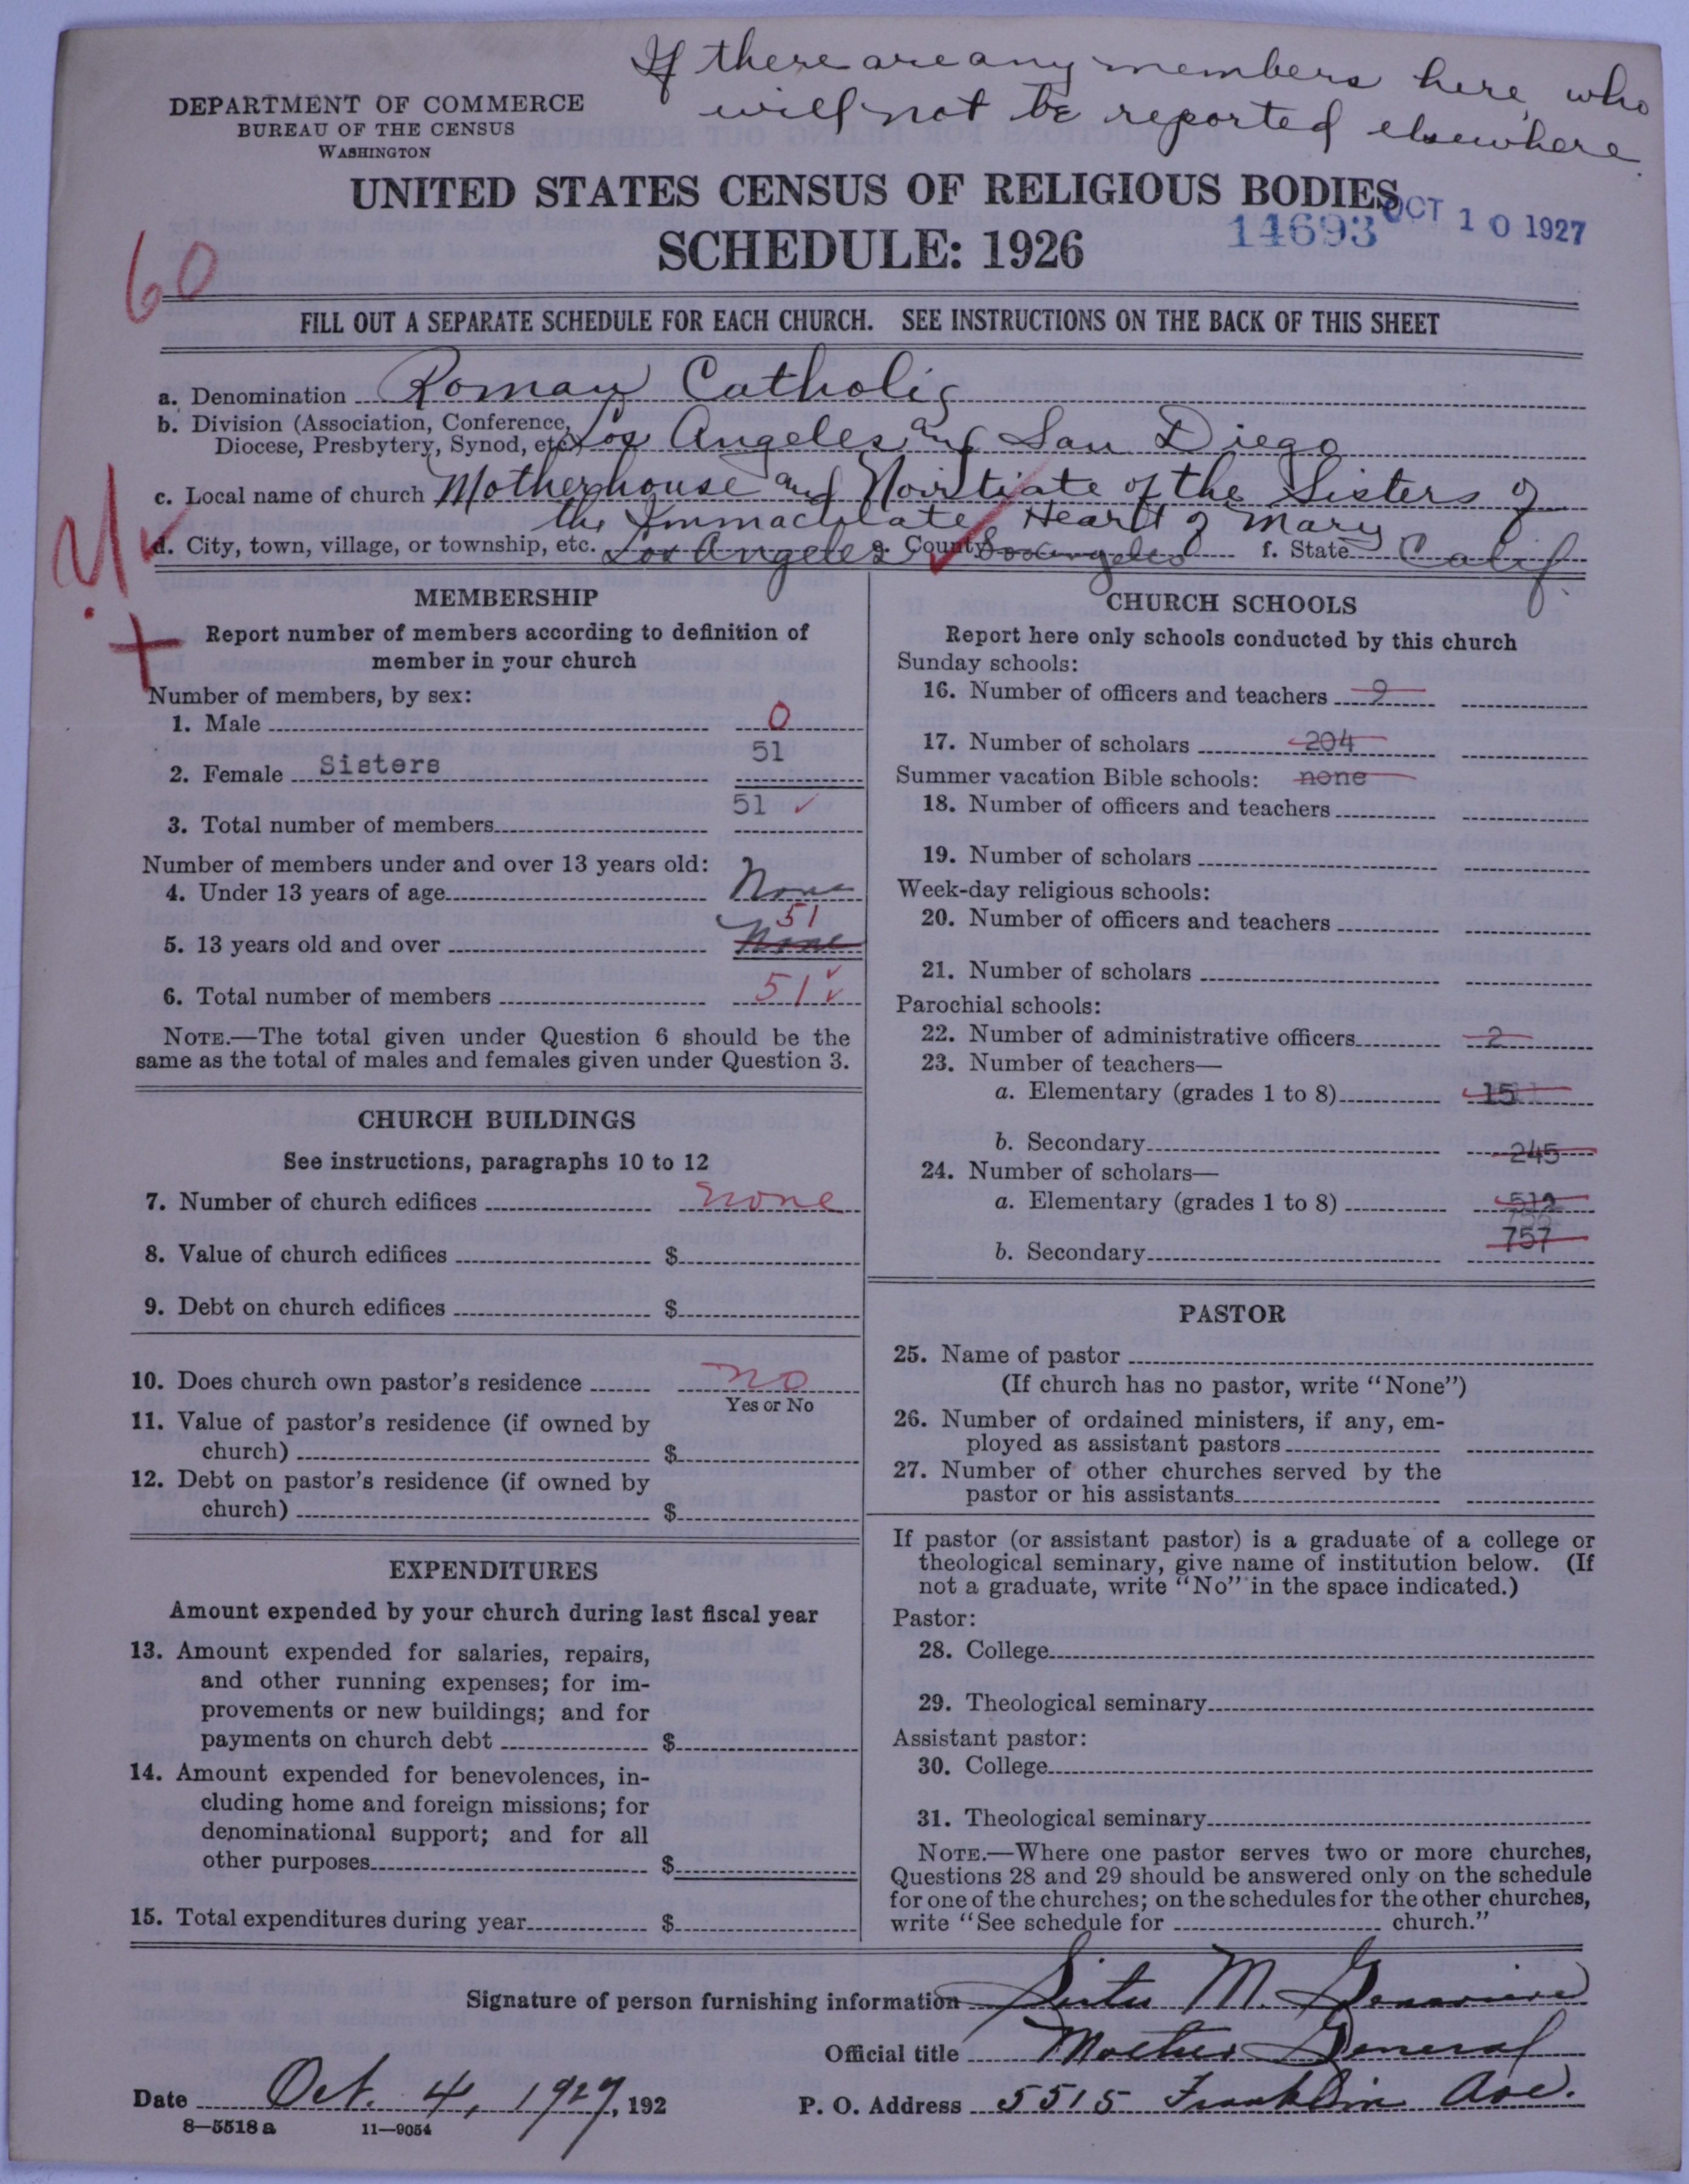 If there are any members here, who
will not be reported elsewhere.
DEPARTMENT OF COMMERCE
BUREAU OF THE CENSUS
WASHINGTON
UNITED STATES CENSUS OF RELIGIOUS BODIES
14693 OCT 10 1927
SCHEDULE: 1926
60
FILL OUT A SEPARATE SCHEDULE FOR EACH CHURCH. SEE INSTRUCTIONS ON THE BACK OF THIS SHEET
a. Denomination Roman Catholic
b. Division (Association, Conference,
Diocese, Presbytery, Synod, etc.) Los Angeles and San Diego
c. Local name of church Motherhouse and Novitiate of the Sisters of
the Immaculate Heart of Mary
d. City, town, village, or township, etc. Los Angeles e. County Los Angeles f. State Calif.
MEMBERSHIP
Report number of members according to definition of
member in your church
Number of members, by sex:
1. Male 0
2. Female Sisters 51
3. Total number of members 51
Number of members under and over 13 years old:
4. Under 13 years of age None
51
5. 13 years old and over None
6. Total number of members 51
NOTE.—The total given under Question 6 should be the
same as the total of males and females given under Question 3.
CHURCH BUILDINGS
See instructions, paragraphs 10 to 12
7. Number of church edifices none
8. Value of church edifices $
9. Debt on church edifices $
10. Does church own pastor's residence no
Yes or No
11. Value of pastor's residence (if owned by
church) $
12. Debt on pastor's residence (if owned by
church) $
EXPENDITURES
Amount expended by your church during last fiscal year
13. Amount expended for salaries, repairs,
and other running expenses; for im-
provements or new buildings; and for
payments on church debt $
14. Amount expended for benevolences, in-
cluding home and foreign missions; for
denominational support; and for all
other purposes $
15. Total expenditures during year $
CHURCH SCHOOLS
Report here only schools conducted by this church
Sunday schools:
16. Number of officers and teachers 9
17. Number of scholars 204
Summer vacation Bible schools: none
18. Number of officers and teachers
19. Number of scholars
Week-day religious schools:
20. Number of officers and teachers
21. Number of scholars
Parochial schools:
22. Number of administrative officers 2
23. Number of teachers—
a. Elementary (grades 1 to 8) 15
b. Secondary 245
24. Number of scholars—
a. Elementary (grades 1 to 8) 512
b. Secondary 757
PASTOR
25. Name of pastor
(If church has no pastor, write "None")
26. Number of ordained ministers, if any, em-
ployed as assistant pastors
27. Number of other churches served by the
pastor or his assistants
If pastor (or assistant pastor) is a graduate of a college or
theological seminary, give name of institution below. (If
not a graduate, write "No" in the space indicated.)
Pastor:
28. College
29. Theological seminary
Assistant pastor:
30. College
31. Theological seminary
NOTE.—Where one pastor serves two or more churches,
Questions 28 and 29 should be answered only on the schedule
for one of the churches; on the schedules for the other churches,
write "See schedule for church."
Signature of person furnishing information Sister M. Genevieve
Official title Mother General
Date Oct. 4, 1927, 192 P. O. Address 5515 Franklin Ave.
8—5518a 11—9054